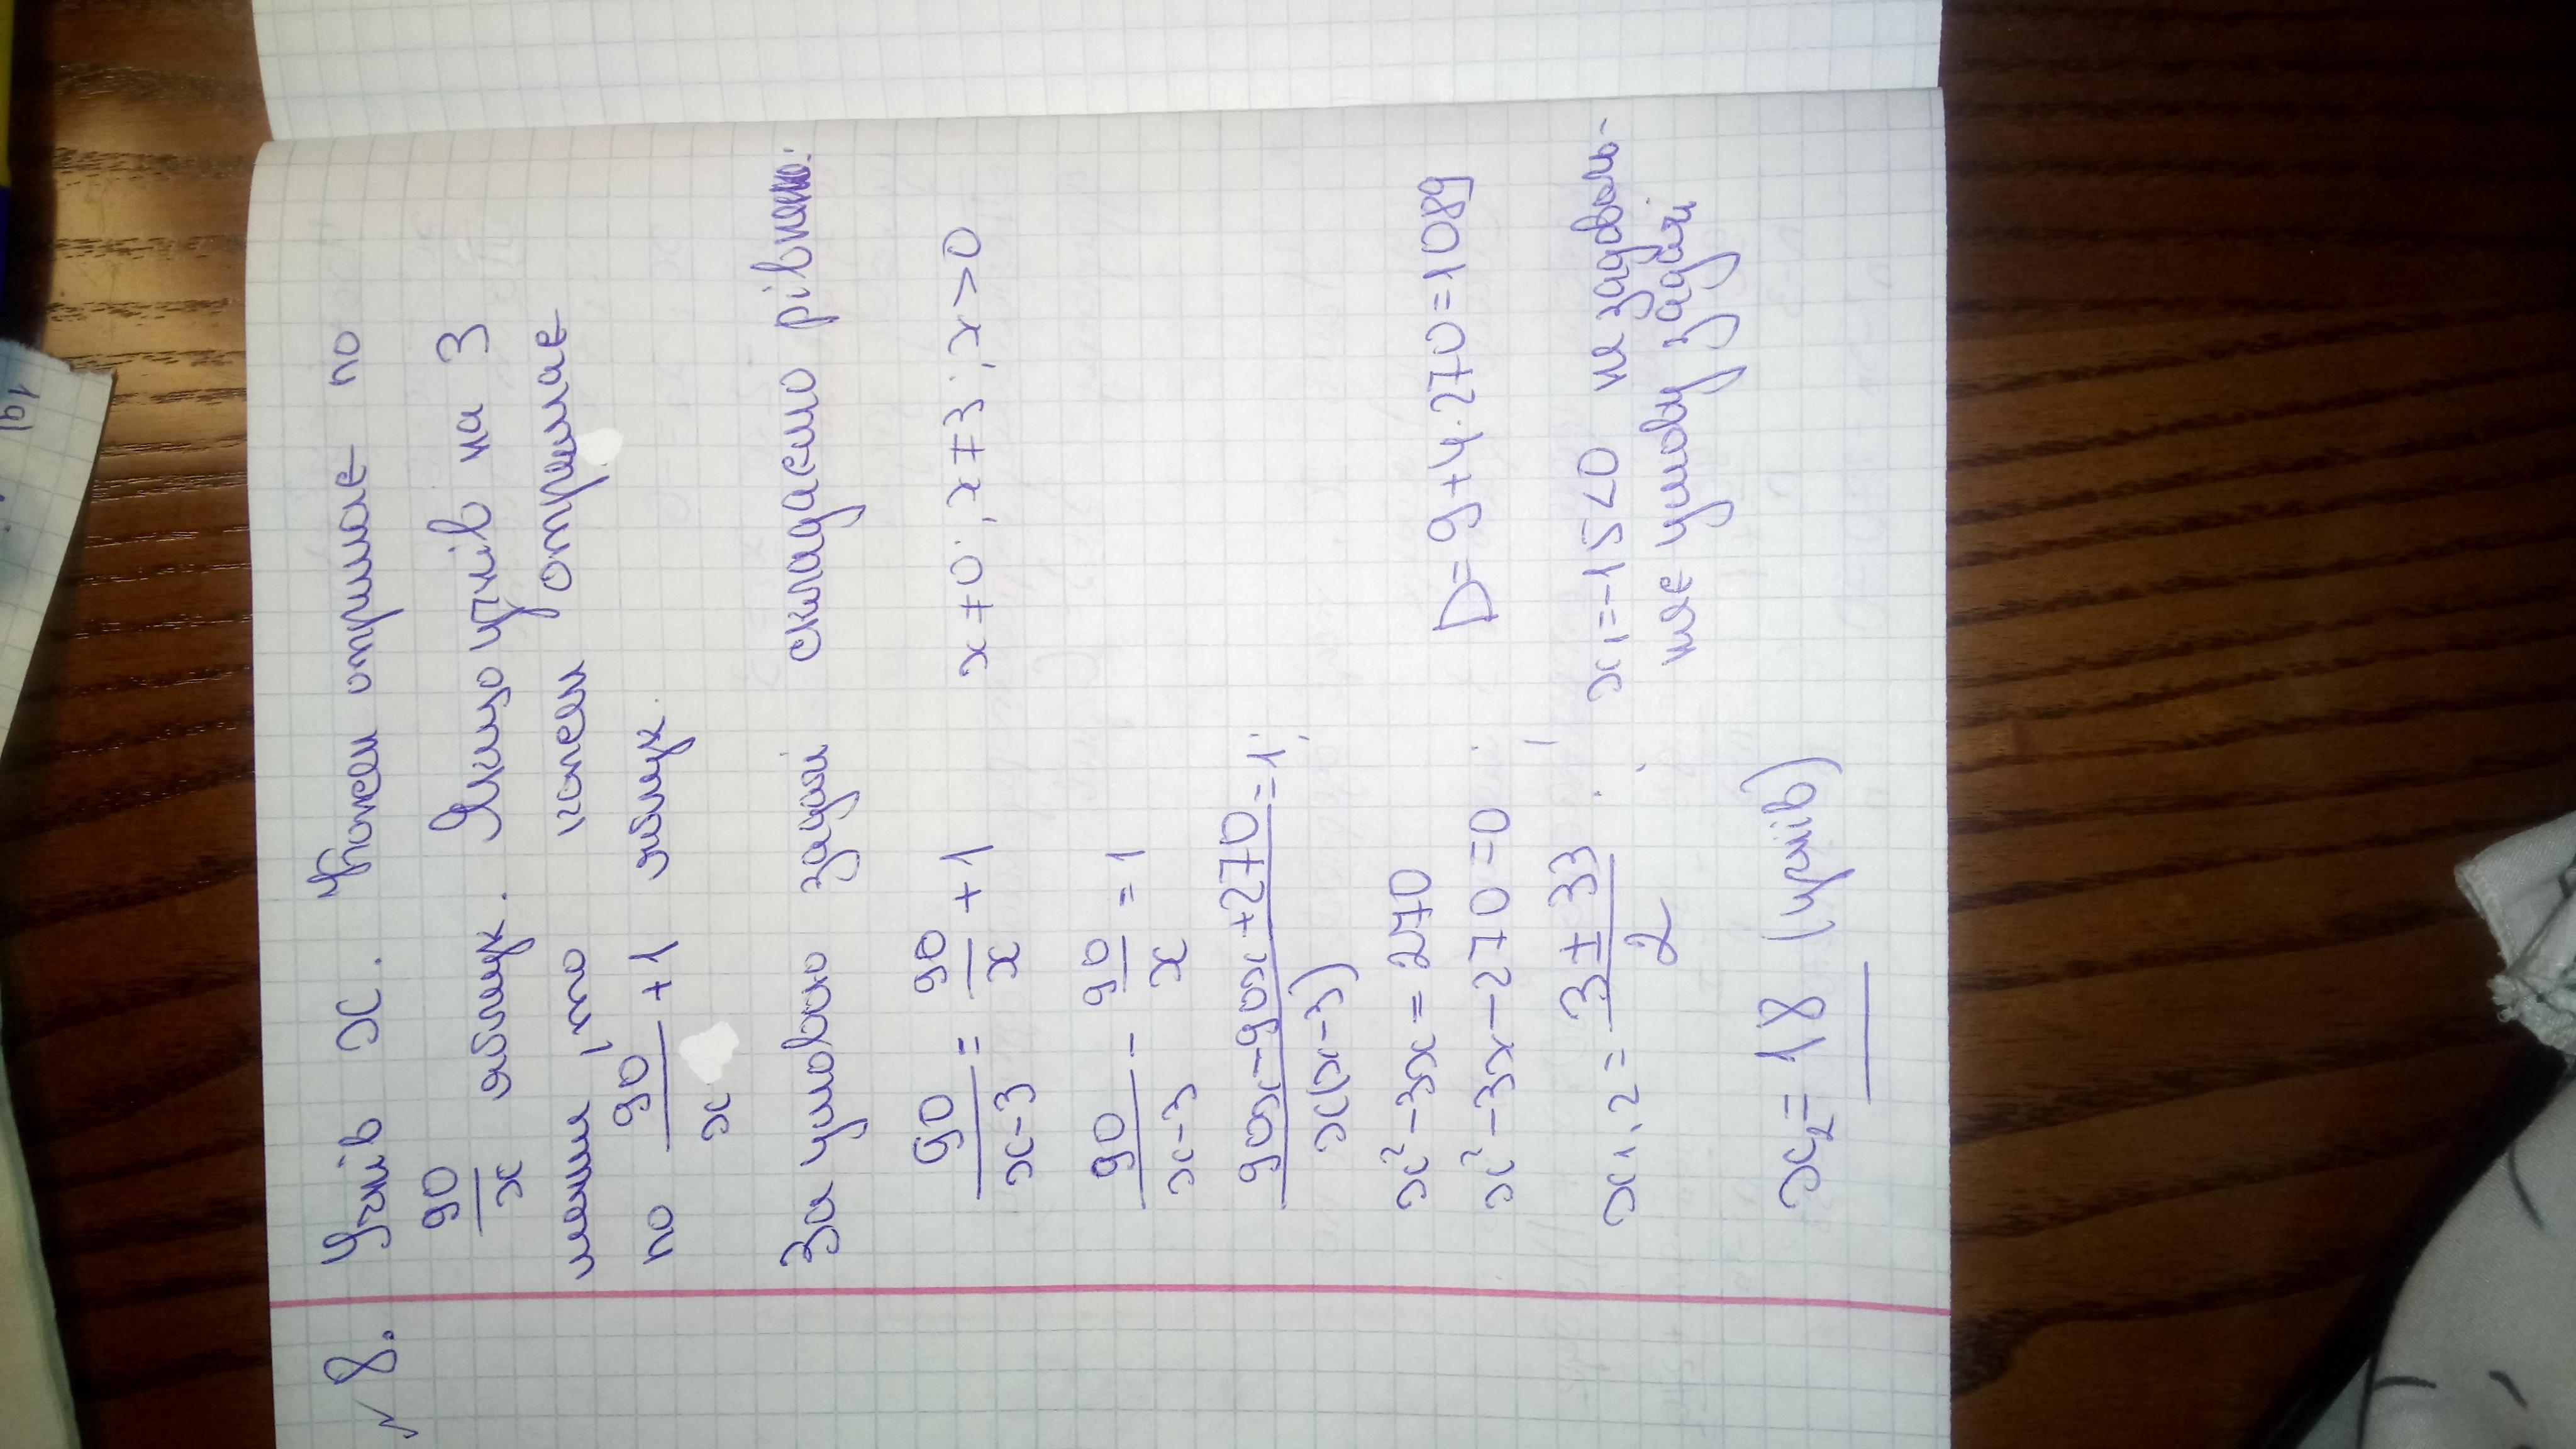 № 8. Учнів x. Кожен отримає по
90/x яблук. Якщо учнів на 3
менше, то кожен отримає
по 90/x + 1 яблук.
За умовою задачі складаємо рівняння:
90/(x-3) = 90/x + 1    x≠0; x≠3; x>0
90/(x-3) - 90/x = 1
(90x-90x+270)/(x(x-3)) = 1;
x²-3x = 270
x²-3x-270=0;    D=9+4·270=1089
x1,2 = (3±33)/2;    x1=-15<0 не задоволь-
няє умову задачі
x2=18 (учнів)